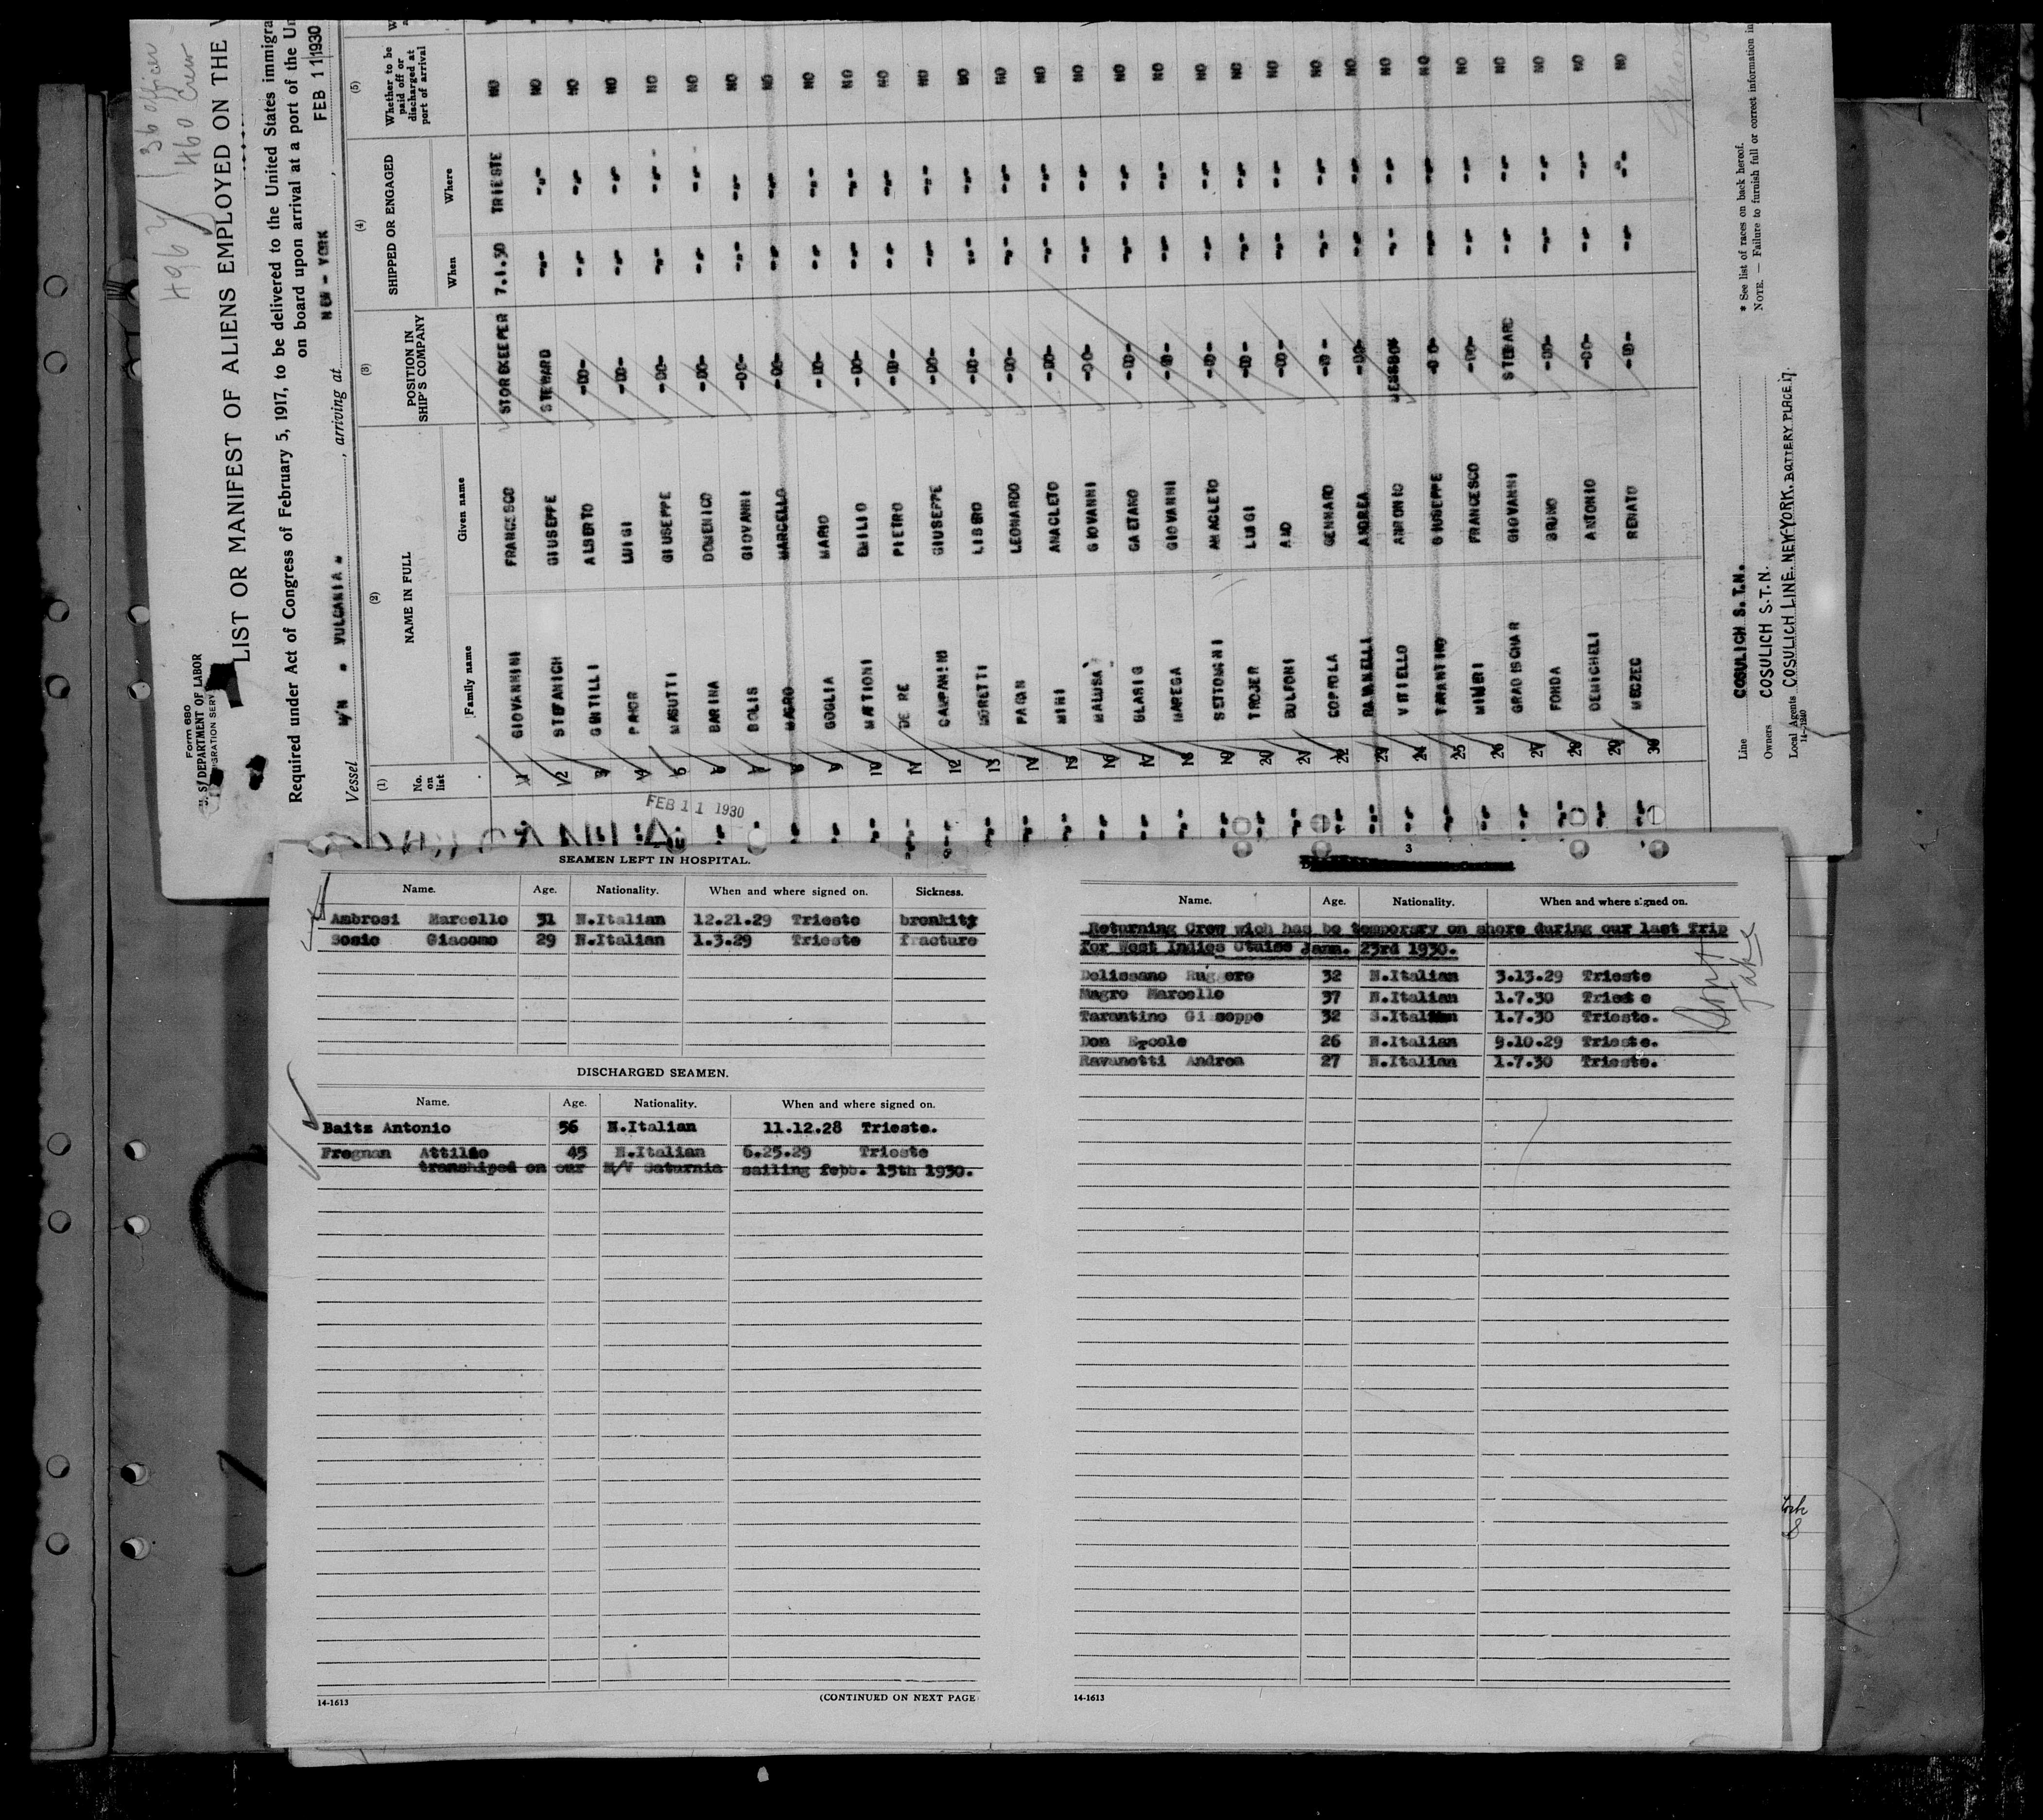 4967
36 officer
460 Crew
Form 680
U. S. DEPARTMENT OF LABOR
LIST OR MANIFEST OF ALIENS EMPLOYED ON THE
Required under Act of Congress of February 5, 1917, to be delivered to the United States immigra
on board upon arrival at a port of the Un
Vessel M/N " VULCANIA " , arriving at NEW - YORK , FEB 11 1930
(1) (2) (3) (4) (5)
No. on list NAME IN FULL POSITION IN SHIP'S COMPANY SHIPPED OR ENGAGED Whether to be paid off or discharged at port of arrival
Family name Given name When Where
1 GIOVANNINI FRANCESCO STOREKEEPER 7.1.30 TRIESTE NO
2 STEFANICH GIUSEPPE STEWARD -"- -"- NO
3 GENTILLI ALBERTO -DO- -"- -"- NO
4 PAHOR LUIGI -DO- -"- -"- NO
5 MASUTTI GIUSEPPE -DO- -"- -"- NO
6 BARINA DOMENICO -DO- -"- -"- NO
7 BOLIS GIOVANNI -DO- -"- -"- NO
8 MAGRO MARCELLO -DO- -"- -"- NO
9 GOGLIA MARIO -DO- -"- -"- NO
10 MATTIONI EMILIO -DO- -"- -"- NO
11 DE RE PIETRO -DO- -"- -"- NO
12 CAMPANINI GIUSEPPE -DO- -"- -"- NO
13 MORETTI LIBERO -DO- -"- -"- NO
14 PAGAN LEONARDO -DO- -"- -"- NO
15 MINI ANACLETO -DO- -"- -"- NO
16 MALUSA' GIOVANNI -DO- -"- -"- NO
17 BLASIG GAETANO -DO- -"- -"- NO
18 MAREGA GIOVANNI -DO- -"- -"- NO
19 SETTOMINI ANACLETO -DO- -"- -"- NO
20 TROJER LUIGI -DO- -"- -"- NO
21 BULFONI -DO- -"- -"- NO
22 COPPOLA GENNARO -DO- -"- -"- NO
23 RAVANELLI ANDREA -DO- -"- -"- NO
24 VITIELLO ANTONIO MESSBOY -"- -"- NO
25 TARANTINO GIUSEPPE -DO- -"- -"- NO
26 MINERI FRANCESCO -DO- -"- -"- NO
27 GRADISCHAR GIOVANNI STEWARD -"- -"- NO
28 FONDA BRUNO -DO- -"- -"- NO
29 DEMICHELI ANTONIO -DO- -"- -"- NO
30 MECZEC RENATO -DO- -"- -"- NO
FEB 11 1930
Line COSULICH S.T.N.
Owners COSULICH S.T.N.
Local Agents COSULICH LINE. NEW-YORK. BATTERY PLACE 17.
* See list of races on back hereof.
NOTE. — Failure to furnish full or correct information in
SEAMEN LEFT IN HOSPITAL.
Name. Age. Nationality. When and where signed on. Sickness.
Ambrosi Marcello 31 N.Italian 12.21.29 Trieste bronkity
Sosic Giacomo 29 N.Italian 1.3.29 Trieste fracture
DISCHARGED SEAMEN.
Name. Age. Nationality. When and where signed on.
Baits Antonio 56 N.Italian 11.12.28 Trieste.
Fregnan Attilio 45 N.Italian 6.25.29 Trieste
transhiped on our M/V Saturnia sailing febb. 15th 1930.
14-1613
(CONTINUED ON NEXT PAGE
3
Name. Age. Nationality. When and where signed on.
Returning Crew wich had be temporary on shore during our last Trip
for West Indies Cruise Jann. 23rd 1930.
Delissano Ruggero 32 N.Italian 3.13.29 Trieste
Magro Marcello 37 N.Italian 1.7.30 Trieste
Tarantino Giuseppe 32 S.Italian 1.7.30 Trieste.
Don Ercole 26 N.Italian 9.10.29 Trieste.
Ravanetti Andrea 27 N.Italian 1.7.30 Trieste.
Dont Take
14-1613